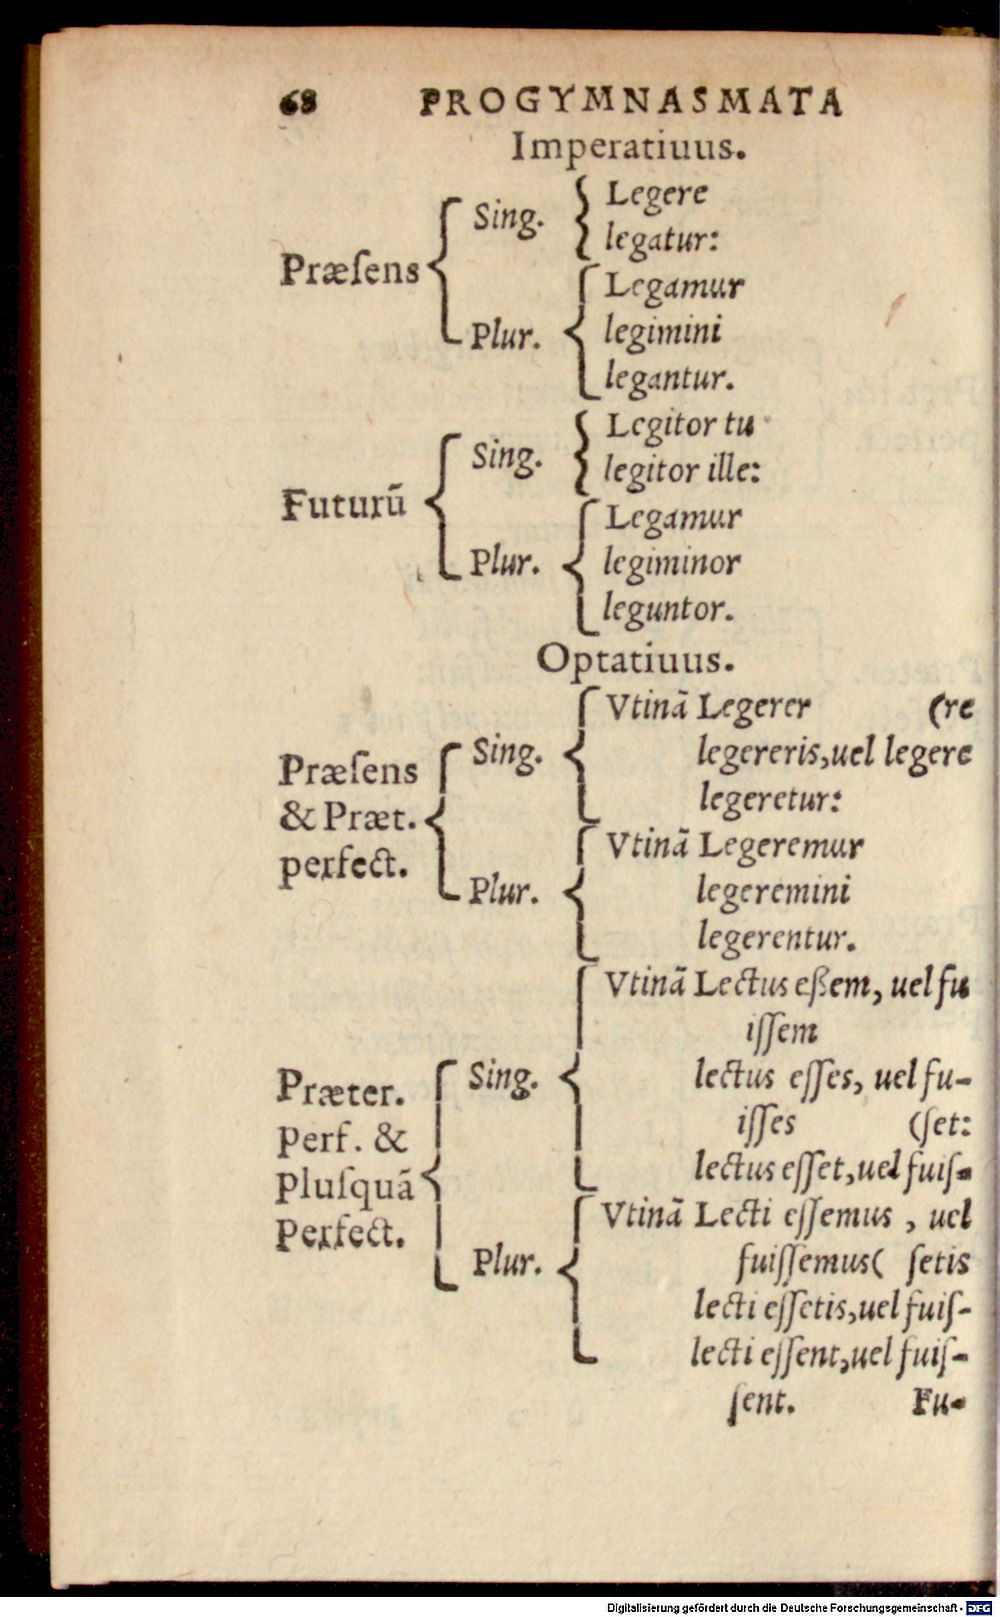 68 PROGYMNASMATA
Imperatiuus.
Præſens
Sing.
Legere
legatur:
Plur.
Legamur
legimini
legantur.
Futurũ
Sing.
Legitor tu
legitor ille:
Plur.
Legamur
legiminor
leguntor.
Optatiuus.
Præſens
& Præt.
perfect.
Sing.
Vtinã Legerer (re
legereris,uel legere
legeretur:
Plur.
Vtinã Legeremur
legeremini
legerentur.
Præter.
perf. &
pluſquã
perfect.
Sing.
Vtinã Lectus eßem, uel fu
iſſem
lectus eſſes, uel fu-
iſſes (ſet:
lectus eſſet,uel fuiſ-
Plur.
Vtinã Lecti eſſemus , uel
fuiſſemus( ſetis
lecti eſſetis,uel fuiſ-
lecti eſſent,uel fuiſ-
ſent. Fu-
Digitalisierung gefördert durch die Deutsche Forschungsgemeinschaft - DFG